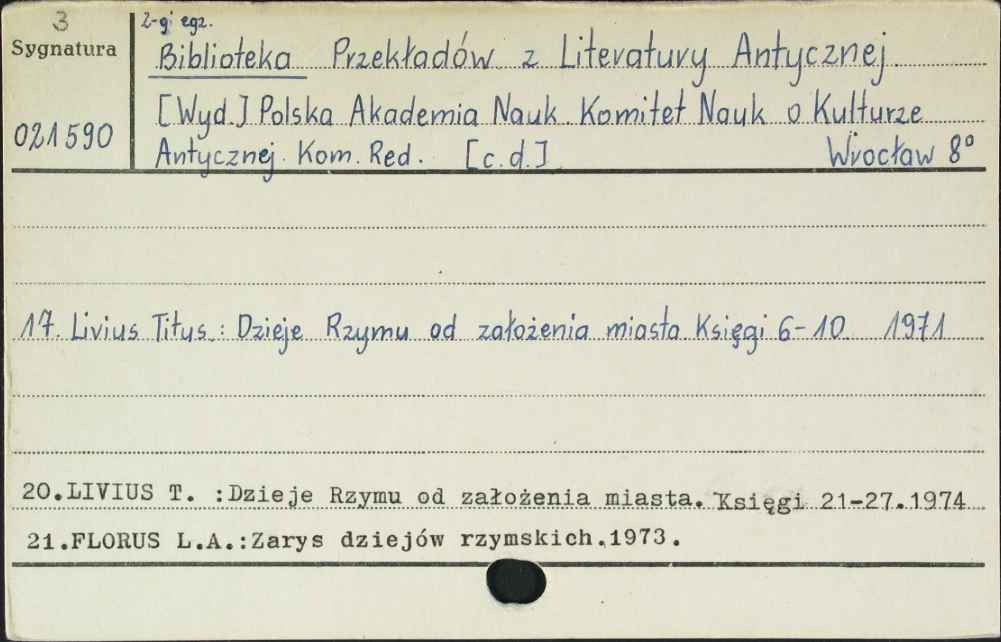 3
2-gi egz.
Sygnatura
Biblioteka Przekładów z Literatury Antycznej.
[Wyd.] Polska Akademia Nauk. Komitet Nauk o Kulturze
021590
Antycznej. Kom. Red. [c.d.] Wrocław 8°
17. Livius Titus.: Dzieje Rzymu od założenia miasta Księgi 6-10. 1971
20.LIVIUS T. :Dzieje Rzymu od założenia miasta. Księgi 21-27.1974
21.FLORUS L.A.:Zarys dziejów rzymskich.1973.